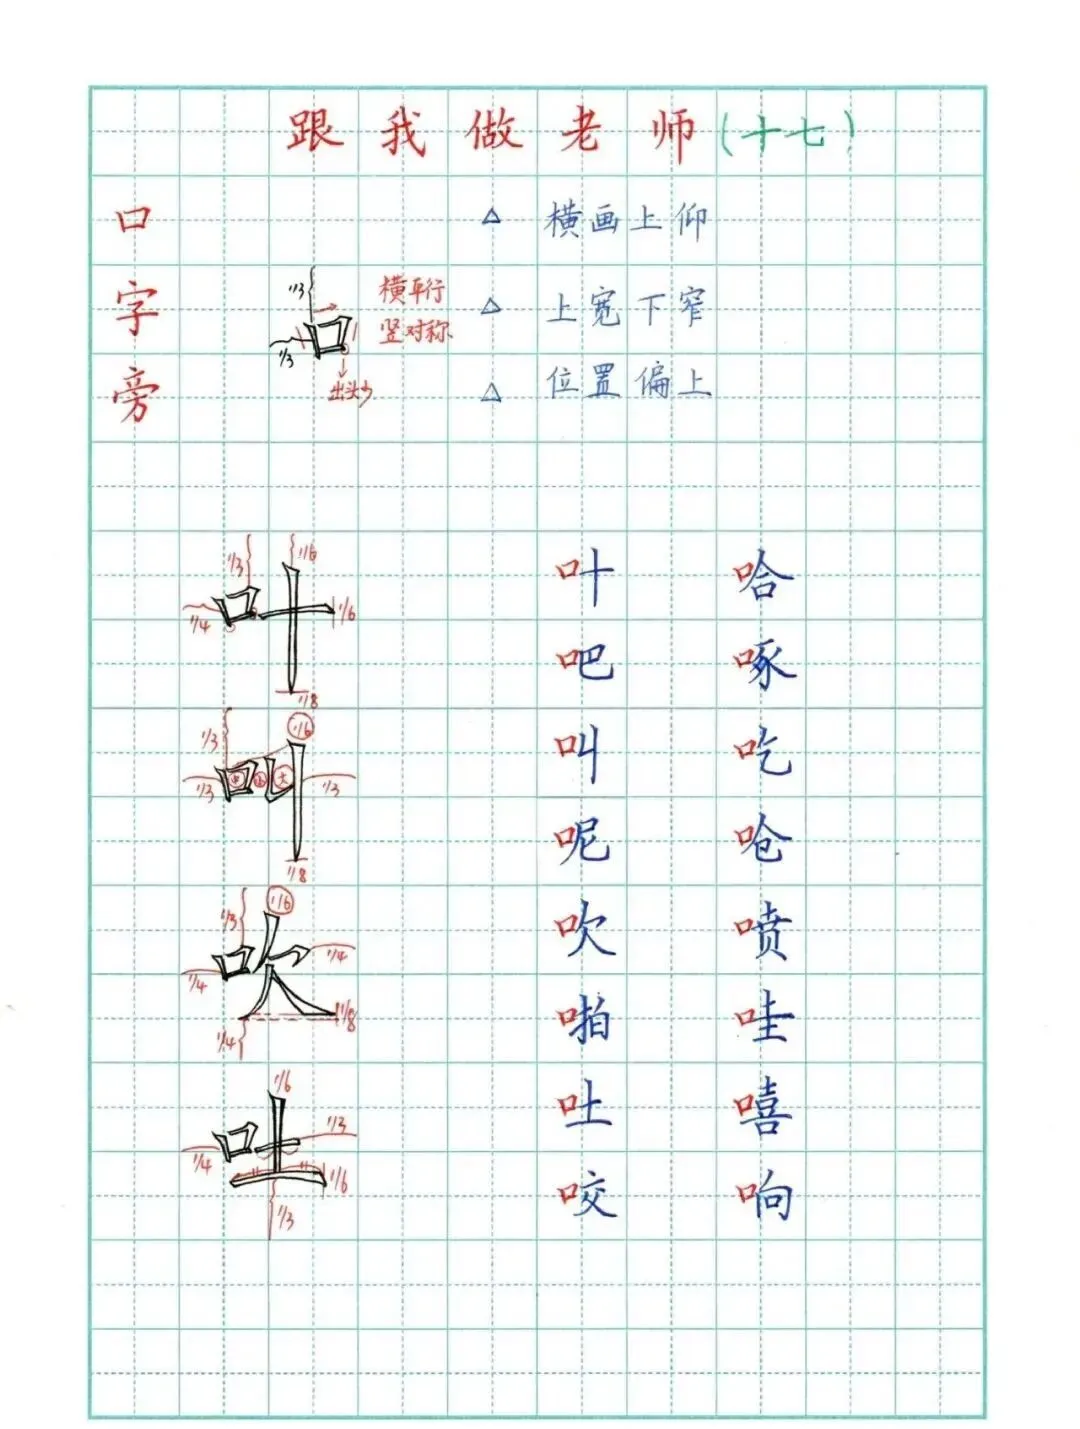 跟我做老师(十七)
口字旁
△ 横画上仰
△ 上宽下窄
△ 位置偏上
1/3
1/3
横平行
竖对称
出头少
1/3
1/6
1/4
1/6
1/8
叶 哈
吧 啄
1/3
1/6
1/3
中 小 大
1/3
1/8
叫 吃
呢 呛
1/3
1/6
1/4
1/4
1/4
1/8
吹 喷
啪 哇
1/6
1/3
1/4
1/6
1/3
吐 嘻
咬 响
叶
叫
吹
吐